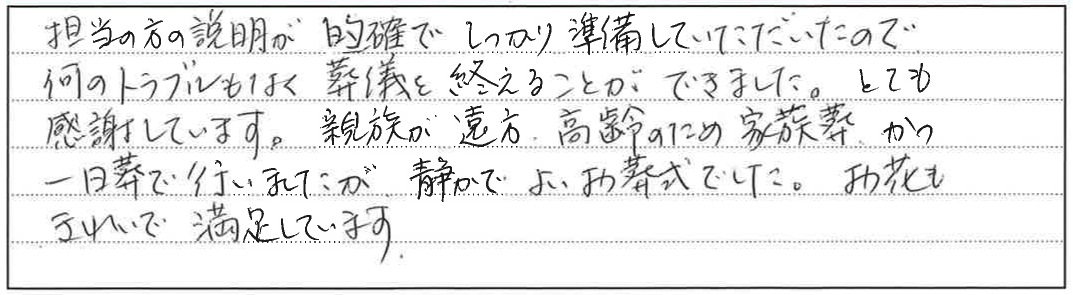 担当の方の説明が 的確で しっかり 準備していただいたので
何のトラブルもなく 葬儀を 終えることが できました。 とても
感謝しています。 親族が 遠方、高齢のため 家族葬、かつ
一日葬で 行いましたが、静かで よいお葬式でした。 お花も
きれいで 満足しています。